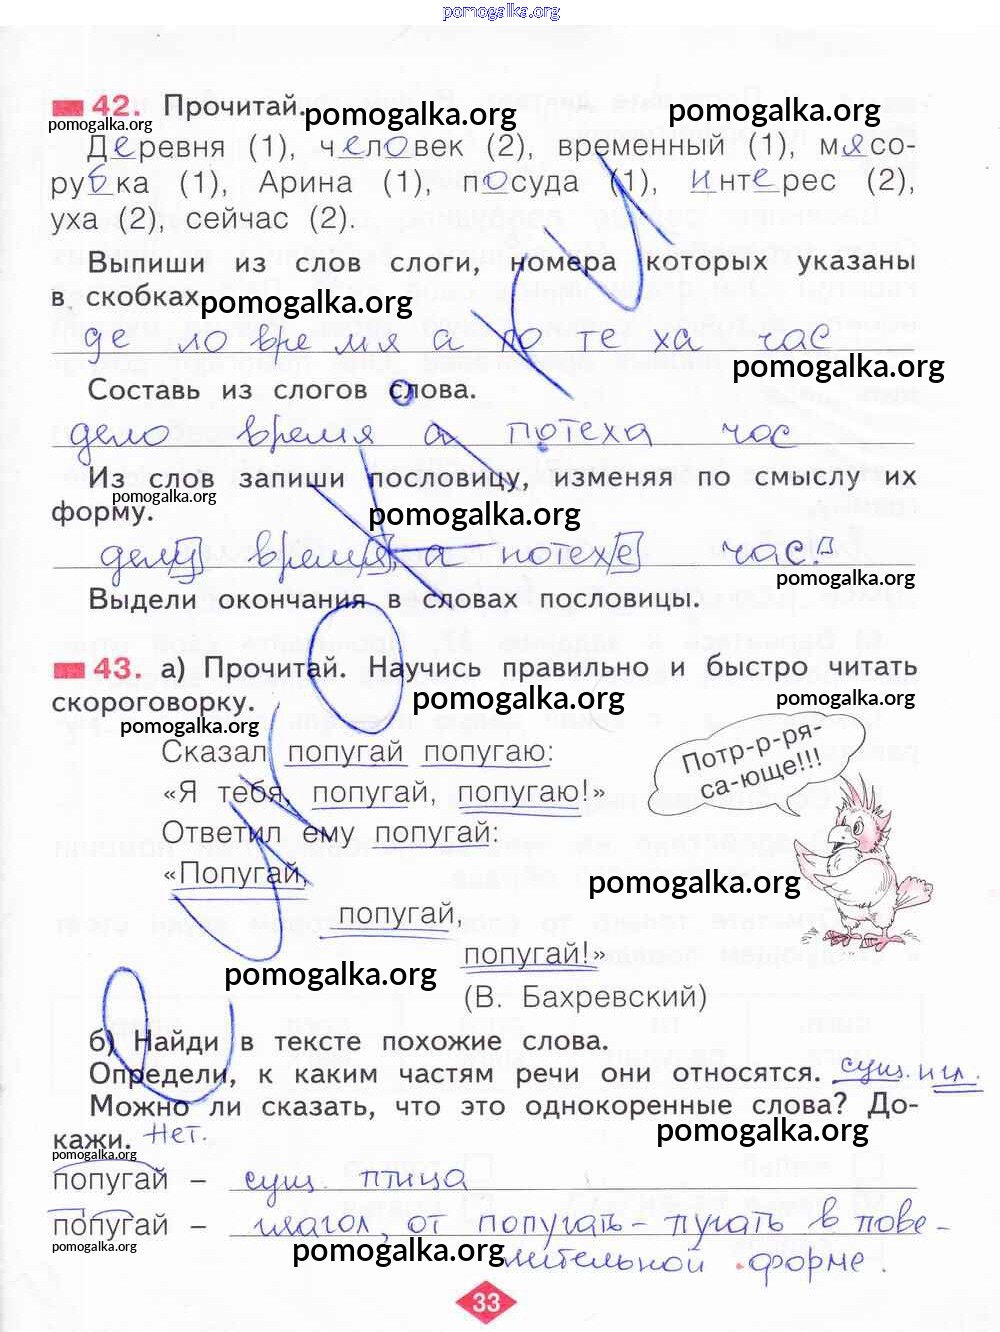 pomogalka.org
42. Прочитай. pomogalka.org pomogalka.org
pomogalka.org
Деревня (1), человек (2), временный (1), мясо-
рубка (1), Арина (1), посуда (1), интерес (2),
уха (2), сейчас (2).
Выпиши из слов слоги, номера которых указаны
в скобках pomogalka.org
де ло вре мя а по те ха час
pomogalka.org
Составь из слогов слова.
дело время а потеха час
Из слов запиши пословицу, изменяя по смыслу их
pomogalka.org
форму. pomogalka.org
делу время, а потехе час.
pomogalka.org
Выдели окончания в словах пословицы.
43. а) Прочитай. Научись правильно и быстро читать
pomogalka.org
скороговорку. pomogalka.org pomogalka.org
pomogalka.org
Сказал попугай попугаю:
Потр-р-ря-
са-юще!!!
«Я тебя, попугай, попугаю!»
Ответил ему попугай:
«Попугай,
pomogalka.org
попугай,
попугай!»
pomogalka.org
(В. Бахревский)
б) Найди в тексте похожие слова.
Определи, к каким частям речи они относятся. сущ. и гл.
Можно ли сказать, что это однокоренные слова? До-
кажи. Нет. pomogalka.org
pomogalka.org
попугай – сущ. птица
попугай – глагол, от попугать – пугать в пове-
pomogalka.org pomogalka.org
лительной форме.
33